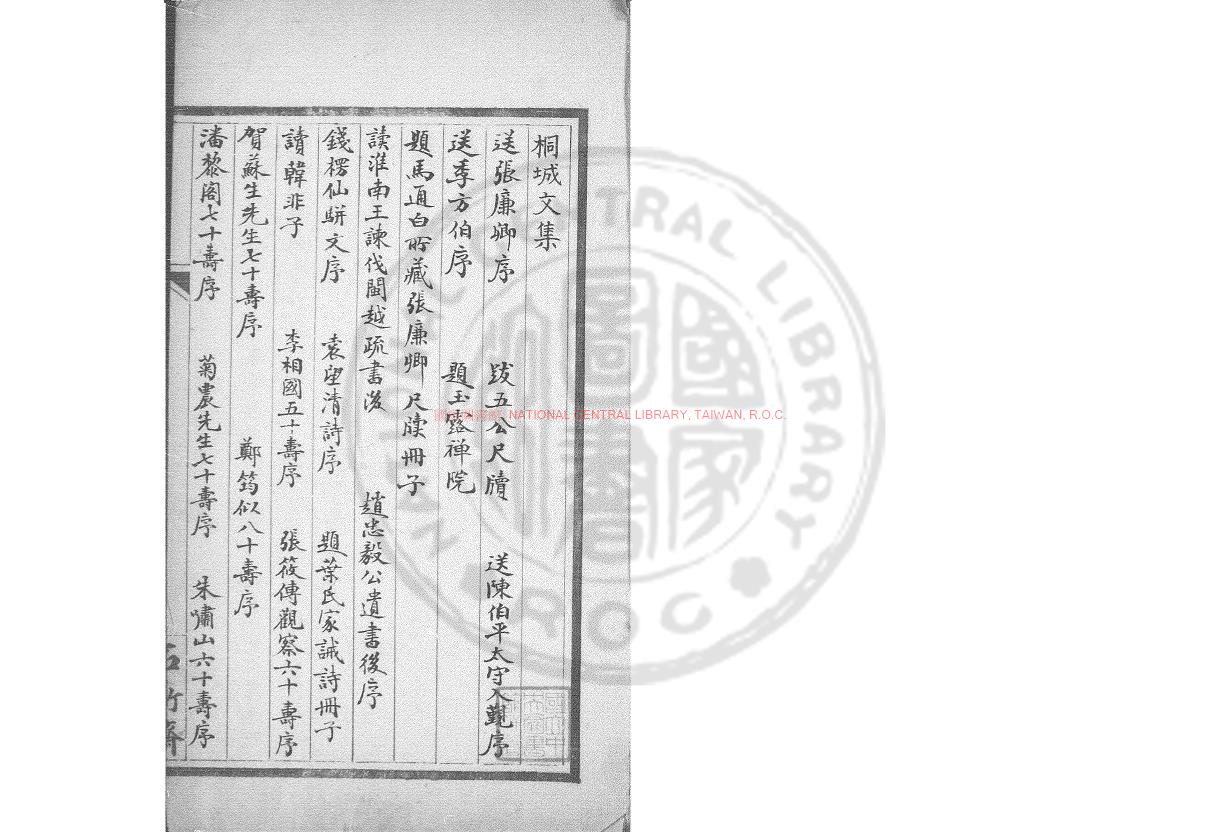 桐城文集
送張廉卿序 跋五公尺牘 送陳伯平太守入覲序
送季方伯序 題玉露禅院
題馬通白所藏張廉卿尺牘冊子
讀淮南王諫伐閩越疏書後 趙忠毅公遺書後序
錢楞仙駢文序 袁望清詩序 題葉氏家誡詩冊子
讀韓非子 李相國五十壽序 張筱傳觀察六十壽序
賀蘇生先生七十壽序 鄭筠似八十壽序
潘黎閣七十壽序 菊農先生七十壽序 朱嘯山六十壽序
NATIONAL CENTRAL LIBRARY, TAIWAN, R.O.C.
國家圖書館